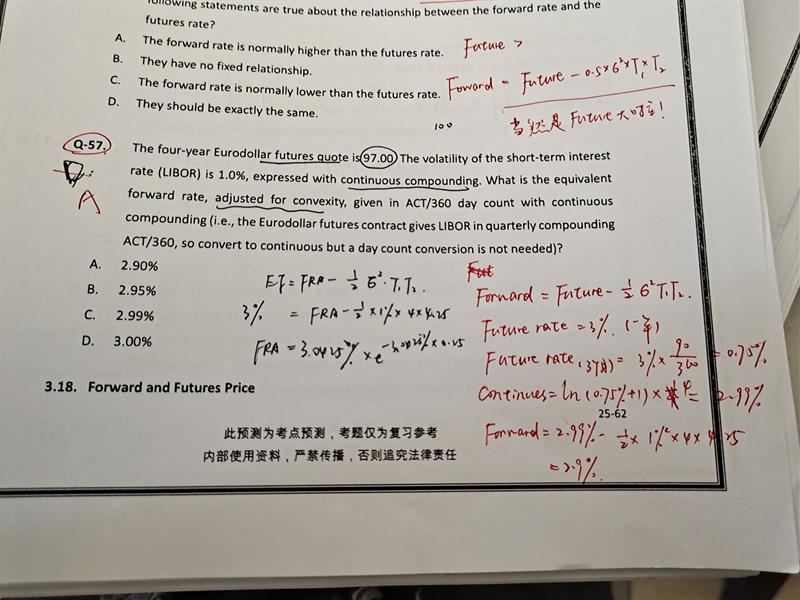 following statements are true about the relationship between the forward rate and the
futures rate?
A. The forward rate is normally higher than the futures rate.
Future >
B. They have no fixed relationship.
C. The forward rate is normally lower than the futures rate.
Forward = Future - 0.5×6²×T₁×T₂
D. They should be exactly the same.
当然是 Future 大啦!
100
Q-57. The four-year Eurodollar futures quote is 97.00 The volatility of the short-term interest
D.
A
rate (LIBOR) is 1.0%, expressed with continuous compounding. What is the equivalent
forward rate, adjusted for convexity, given in ACT/360 day count with continuous
compounding (i.e., the Eurodollar futures contract gives LIBOR in quarterly compounding
ACT/360, so convert to continuous but a day count conversion is not needed)?
A. 2.90%
B. 2.95%
C. 2.99%
D. 3.00%
EF = FRA - ½ 6²·T₁T₂.
3% = FRA - ½ × 1% × 4 × 4.25
FRA = 3.0425% × e^-3.0425% × 0.25
Fut
Forward = Future - ½ 6² T₁T₂.
Future rate = 3% (一年)
Future rate (3个月) = 3% × 90/360 = 0.75%
Continues = ln (0.75%+1) × 4 = 2.99%
Forward = 2.99% - ½ × 1%² × 4 × 4.25
= 2.9%.
3.18. Forward and Futures Price
25-62
此预测为考点预测，考题仅为复习参考
内部使用资料，严禁传播，否则追究法律责任